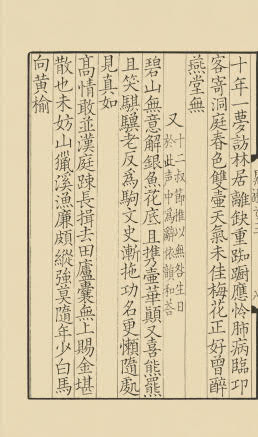 十年一夢訪林居離缺重踟躕應怜肺病臨卭
客寄洞庭春色雙壺天氣未佳梅花正好曾醉
燕堂無
又
十二叔節推以無咎生日
於此聲中爲辭依韻和荅
碧山無意解銀魚花底且攜壺華顛又喜熊羆
且笑騏驥老反爲駒文史漸拋功名更懶隨處
見真如
髙情敢並漢庭踈長揖去田廬囊無上賜金堪
散也未妨山獵溪漁廉頗縱強莫隨年少白馬
向黃榆